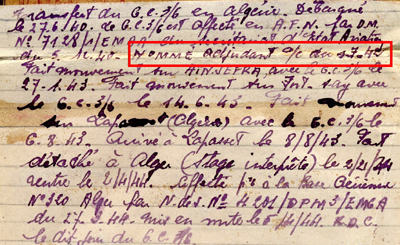 Transfert du G.C.3/6 en Algérie. Débarqué
le 27.6/40. Le G.C.3/6 est affecté en A.F.N. par D.M.
N° 7128/1/EMGA du Secrétariat d'Etat Aviation
du 5.11.40. NOMMÉ Adjudant a/c du 1.7.43
Fait mouvement sur AIN.SEFRA avec le G.C.3/6 le
27.1.43. Fait mouvement sur Fort.
avec le G.C.3/6 le 14.6.43. Fait
sur Lapasset (Algérie) avec le G.C.3/6 le
6.8.43. Arrivé à Lapasset le 8/8/43. Fait
détaché à Alger (Stage interprète) le 2/2/44
rentré le 2/4/44. Affecté à la Base Aérienne
N° 320 Alger par N.de S. N° 4201/DPM3/EMGA
du 27.3.44. mis en route le /4/44. R.D.C.
le dit jour du G.C.3/6.